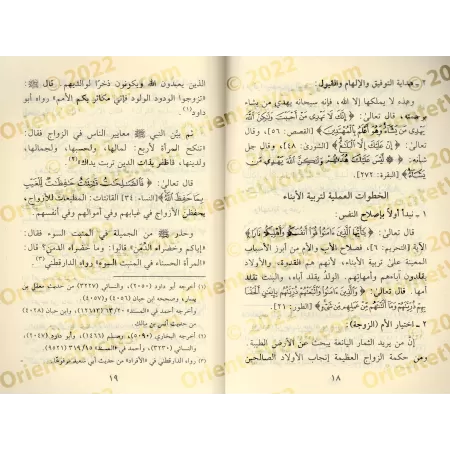 ٢ - هداية التوفيق والإلهام والقبول:
وهذه لا يملكها إلا الله، فإنه سبحانه يهدي من يشاء
برحمته، قال تعالى: ﴿إِنَّكَ لَا تَهْدِي مَنْ أَحْبَبْتَ وَلَٰكِنَّ اللَّهَ
يَهْدِي مَن يَشَاءُ وَهُوَ أَعْلَمُ بِالْمُهْتَدِينَ﴾ [القصص: ٥٦]، وقال
تعالى: ﴿إِنْ عَلَيْكَ إِلَّا الْبَلَاغُ﴾ [الشورى: ٤٨]، وقال جل
شأنه: ﴿لَّيْسَ عَلَيْكَ هُدَاهُمْ وَلَٰكِنَّ اللَّهَ يَهْدِي مَن
يَشَاءُ﴾ [البقرة: ٢٧٢].
الخطوات العملية لتربية الأبناء
١ - نبدأ أولاً بإصلاح النفس:
قال تعالى: ﴿يَا أَيُّهَا الَّذِينَ آمَنُوا قُوا أَنفُسَكُمْ وَأَهْلِيكُمْ نَارًا﴾
الآية [التحريم: ٦]، فصلاح الأب والأم من أبرز الأسباب
المعينة على تربية الأبناء لأنهم هم القدوة، والأولاد
يقلدون آباءهم وأمهاتهم. الولد يقلد أباه، والبنت تقلد
أمها. قال تعالى: ﴿وَالَّذِينَ آمَنُوا وَاتَّبَعَتْهُمْ ذُرِّيَّتُهُم بِإِيمَانٍ أَلْحَقْنَا
بِهِمْ ذُرِّيَّتَهُمْ وَمَا أَلَتْنَاهُم مِّنْ عَمَلِهِم مِّن شَيْءٍ﴾ [الطور: ٢١].
٢ - اختيار الأم (الزوجة):
إنَّ من يريد الثمار اليانعة يبحث عن الأرض الطيبة.
ومن حكمة الزواج العظيمة إنجاب الأولاد الصالحين
١٨
الذين يعبدون الله ويكونون ذخرًا لوالديهم. قال ﷺ:
«تزوجوا الودود الولود فإني مكاثر بكم الأمم» رواه أبو
داود(١).
ثم بيَّن النبي ﷺ معايير الناس في الزواج فقال:
«تنكح المرأة لأربع: لمالها، ولحسبها، ولجمالها،
ولدينها، فاظفر بذات الدين تربت يداك»(٢)
قال تعالى: ﴿فَالصَّالِحَاتُ قَانِتَاتٌ حَافِظَاتٌ لِّلْغَيْبِ
بِمَا حَفِظَ اللَّهُ﴾ [النساء: ٣٤] القانتات: المطيعات للأزواج،
يحفظن الأزواج في غيابهم وفي أموالهم وفي أنفسهم.
وحذر ﷺ من الجميلة في المنبت السوء فقال:
«إياكم وخضراء الدِّمَن» قالوا: وما خضراء الدمن؟ قال:
«المرأة الحسناء في المنبت السوء» رواه الدارقطني(٣)
(١) أخرجه أبو داود (٢٠٥٠)، والنسائي (٣٢٢٧) من حديث معقل بن
يسار، وصححه ابن حبان (٤٠٥٦) و(٤٠٥٧)
وأخرجه أحمد في «المسند» ٦٣/٢٠ (١٢٦١٣)، وابن حبان (٤٠٢٨)
من حديث أنس بن مالك.
(٢) أخرجه البخاري (٥٠٩٠)، ومسلم (١٤٦٦)، وأبو داود (٢٠٤٧)،
والنسائي (٣٢٣٠)، وأحمد في «المسند» ٣١٩/١٥ (٩٥٢١)
(٣) رواه الدارقطني في «الأفراد» من حديث أبي سعيد مرفوعًا.
١٩
OrientetVous.com © 2022